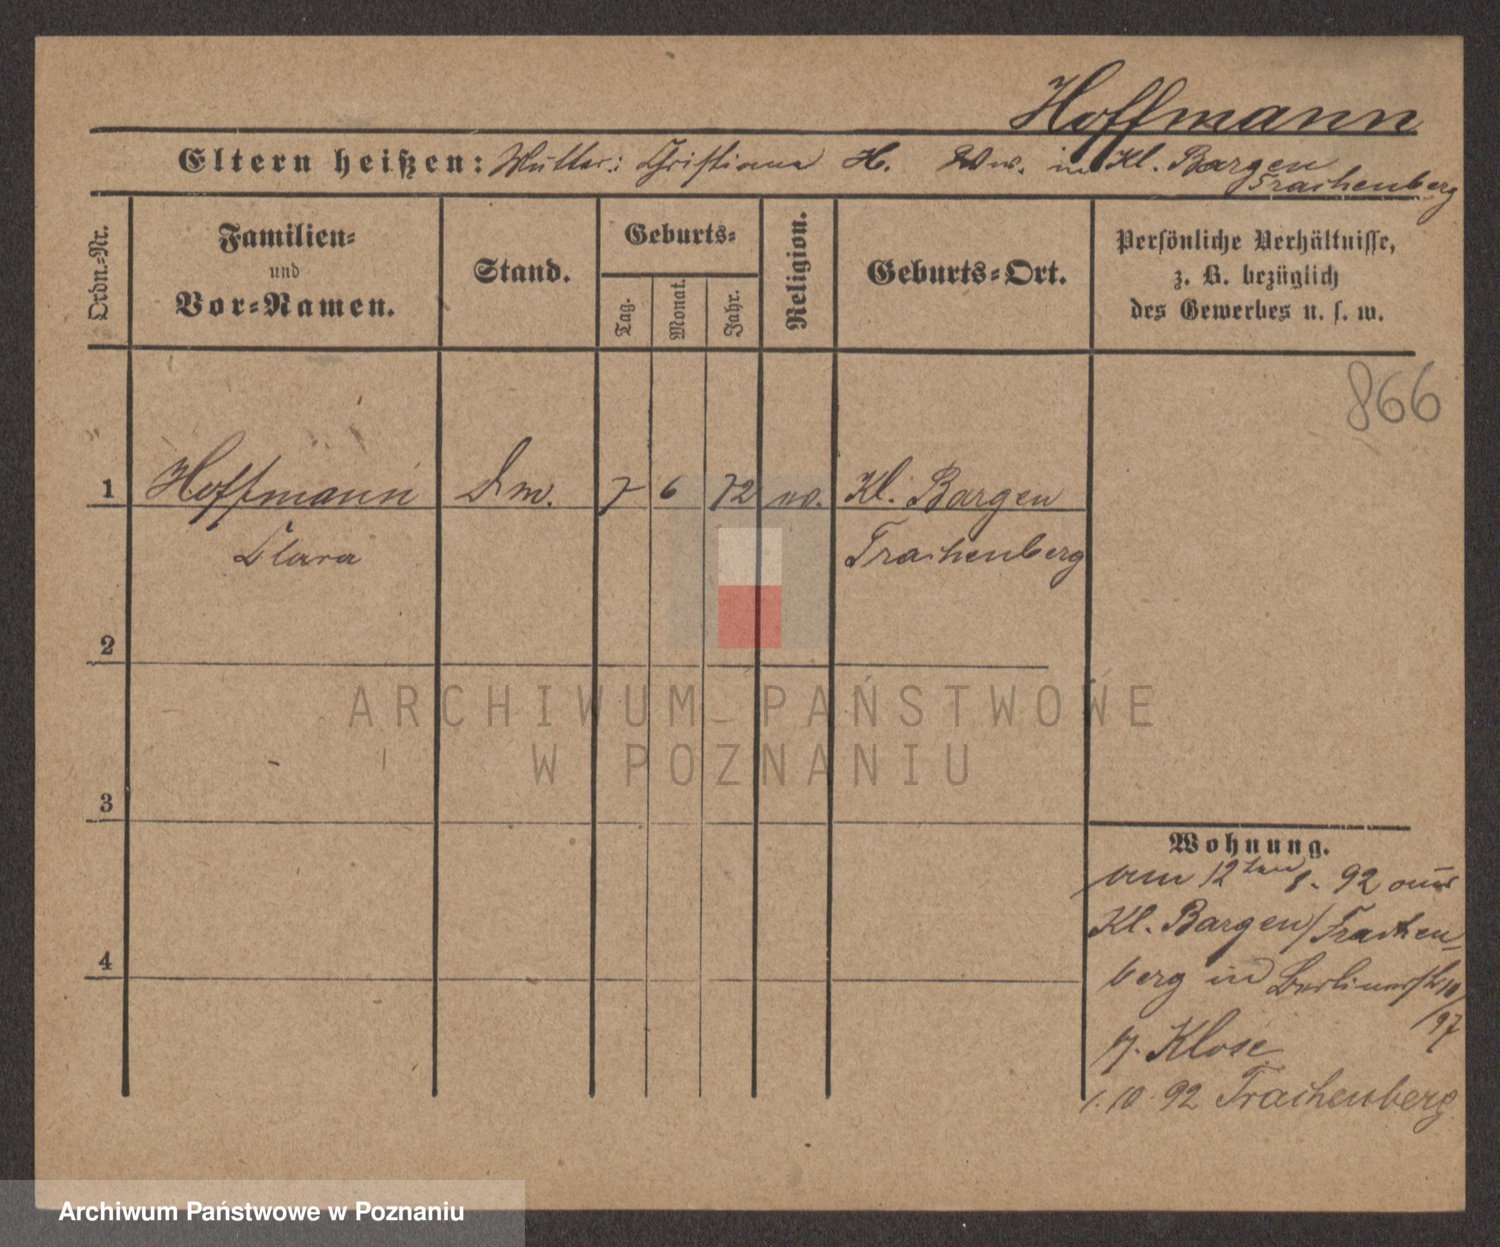 Hoffmann
Eltern heißen: Mutter: Christiane H. Ww. in Kl. Bargen
Trachenberg
Ordn.-Nr.
Familien-
und
Vor-Namen.
Stand.
Geburts-
Tag.
Monat.
Jahr.
Religion.
Geburts-Ort.
Persönliche Verhältnisse,
z. B. bezüglich
des Gewerbes u. s. w.
866
1 Hoffmann 7 6 72 Kl. Bargen
Clara Trachenberg
2
3
4
ARCHIWUM PAŃSTWOWE
W POZNANIU
Wohnung.
am 12ten 8. 92 aus
Kl. Bargen/Trachen-
berg in Berlinerstr 10/
97
Klose
1.10.92 Trachenberg
Archiwum Państwowe w Poznaniu